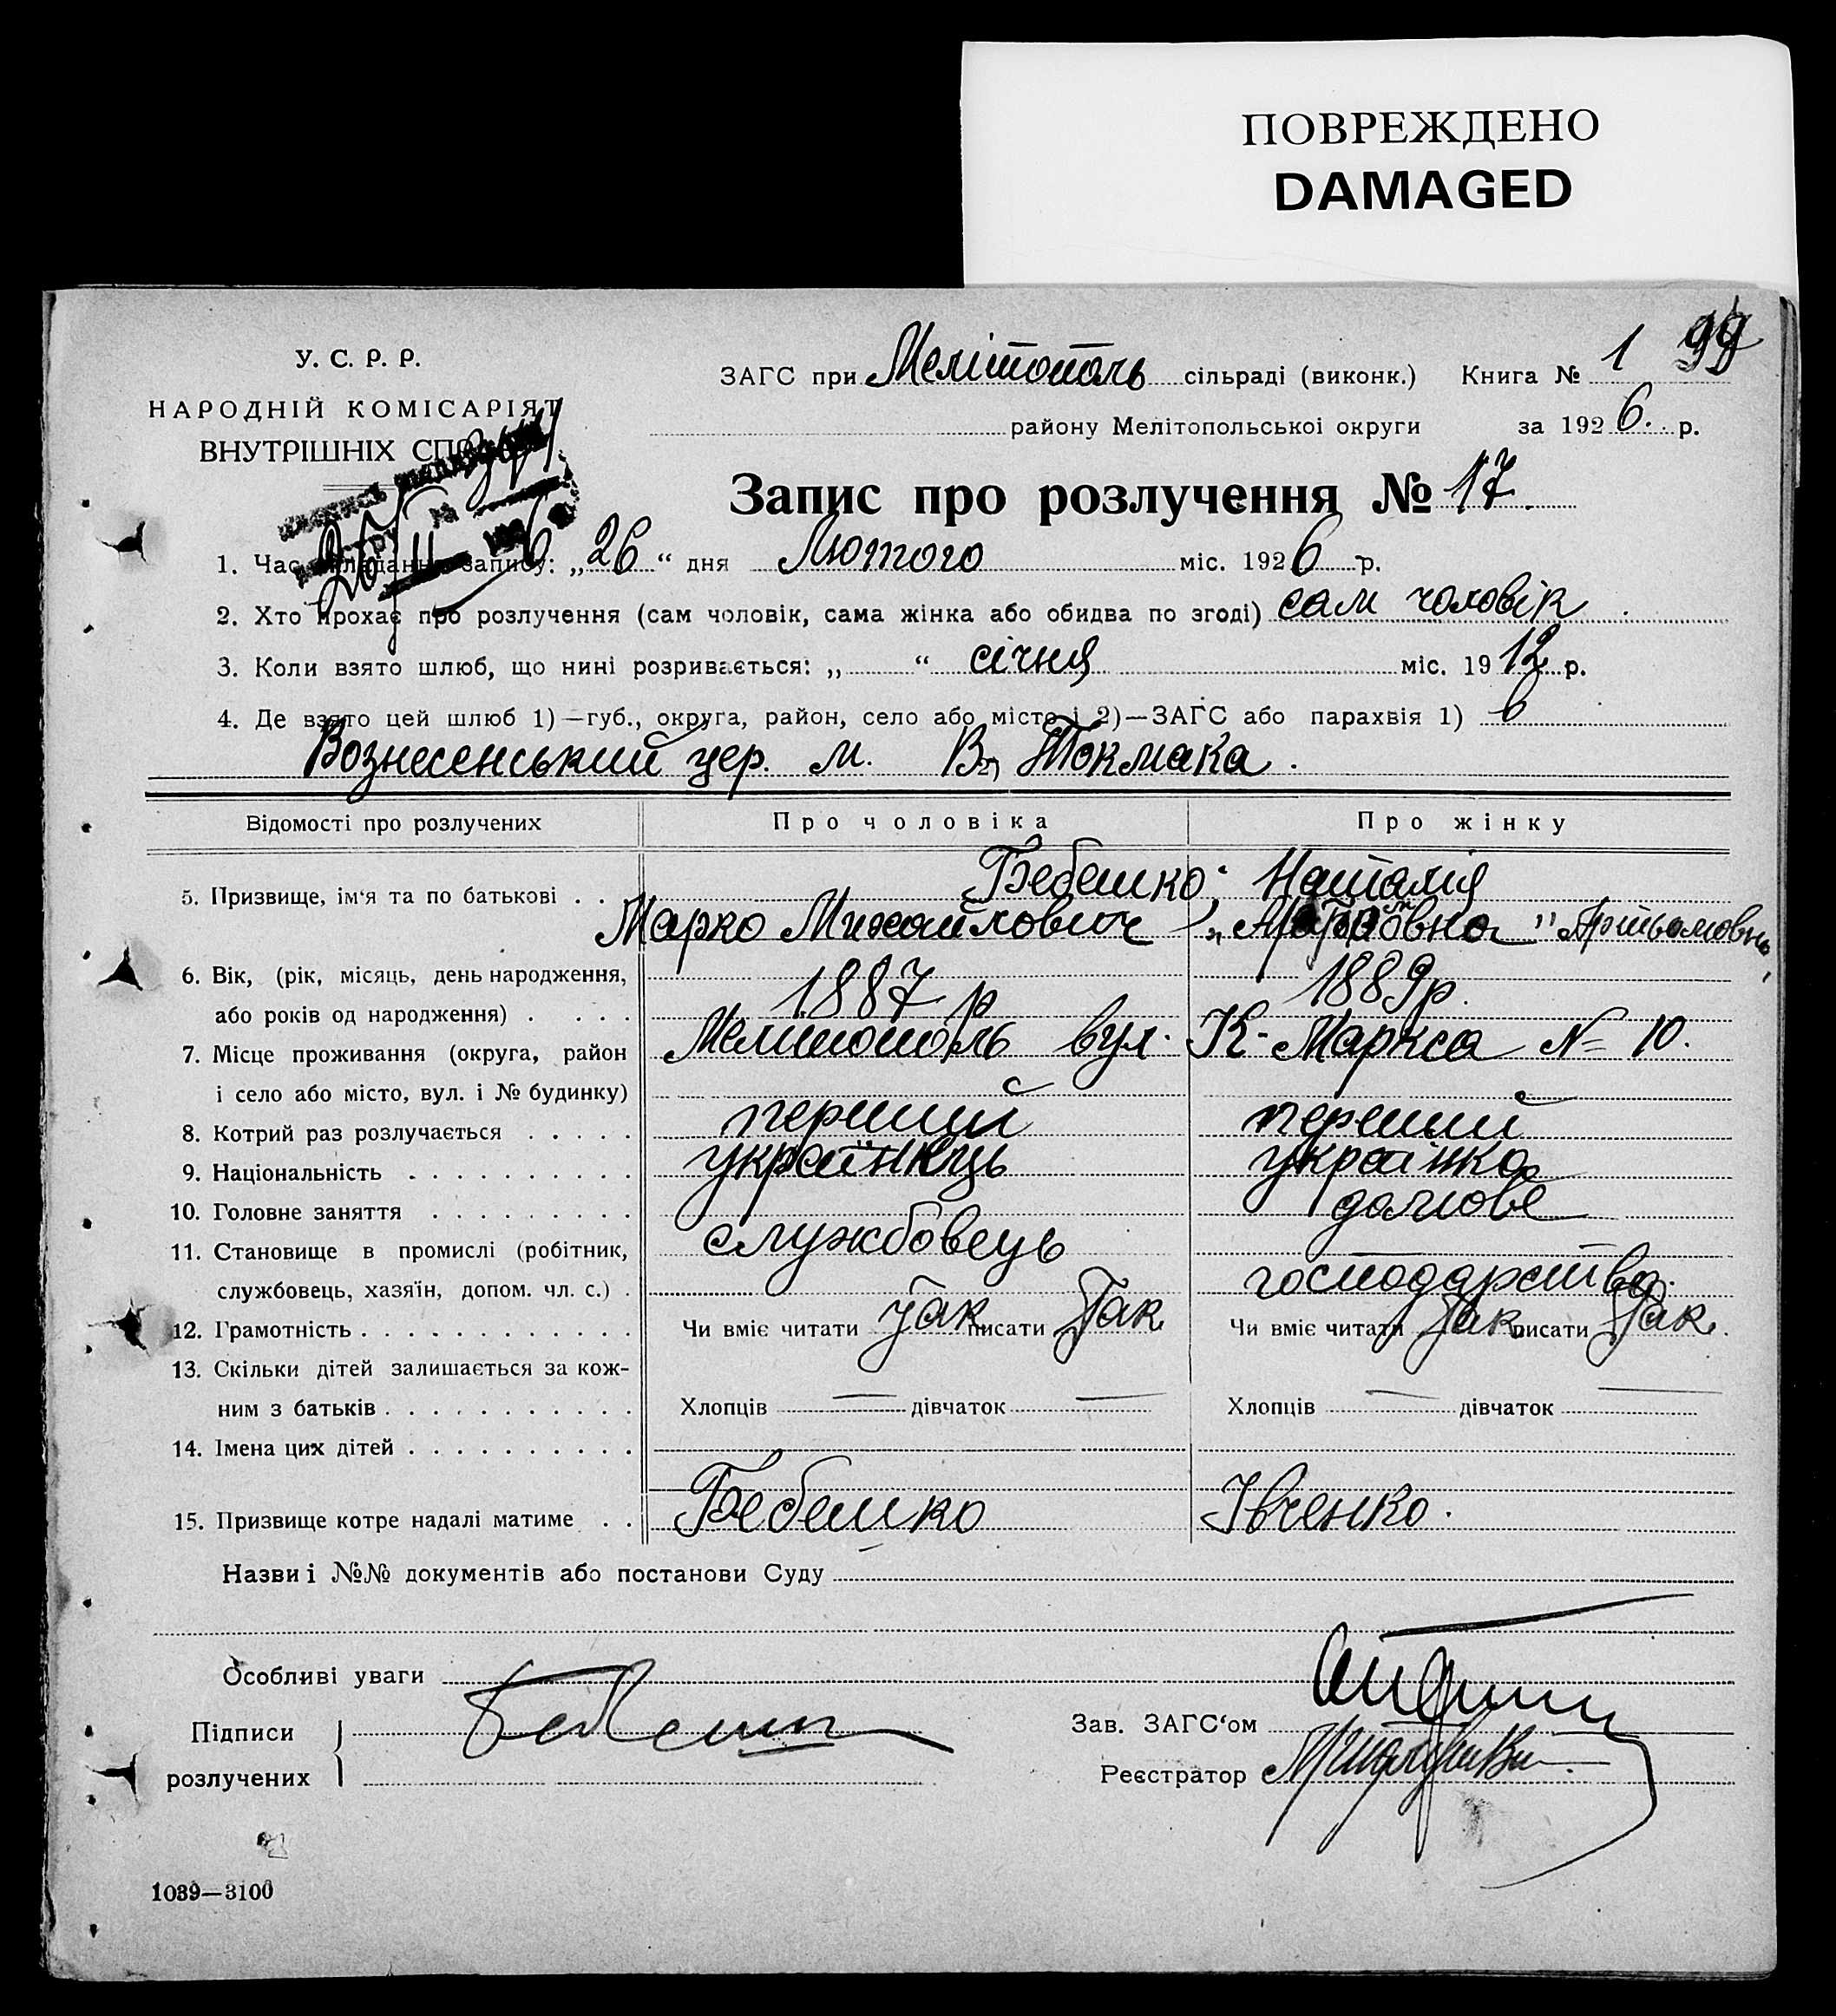 ПОВРЕЖДЕНО
DAMAGED
У. С. Р. Р.
НАРОДНІЙ КОМІСАРІЯТ
ВНУТРІШНІХ
ЗАГС при Мелітополь сільраді (виконк.) Книга № 1 99
району Мелітопольської округи за 1926. р.
Запис про розлучення № 17.
1. Час складання запису: „26“ дня Лютого міс. 1926 р.
2. Хто прохає про розлучення (сам чоловік, сама жінка або обидва по згоді) сам чоловік
3. Коли взято шлюб, що нині розривається: „ “ січня міс. 1912 р.
4. Де взято цей шлюб 1)—губ., округа, район, село або місто і 2)—ЗАГС або парахвія 1) в
Вознесенський цер. м. В. Токмака.
Відомості про розлучених Про чоловіка Про жінку
5. Призвище, ім‘я та по батькові . . Бебешко; Наталія
Марко Михайлович „ " Артьомовна
6. Вік, (рік, місяць, день народження,
або років од народження) . . . . 1887 р 1889р.
7. Місце проживання (округа, район Мелитополь вул. К-Маркса № 10.
і село або місто, вул. і № будинку)
8. Котрий раз розлучається . . . . . перший перший
9. Національність . . . . . . . . . . українець українка
10. Головне заняття . . . . . . . . . домове
11. Становище в промислі (робітник, службовець
службовець, хазяїн, допом. чл. с.) . господарство.
12. Грамотність . . . . . . . . . . . . Чи вміє читати так писати Так Чи вміє читати Так писати Так.
13. Скільки дітей залишається за кож-
ним з батьків . . . . . . . . . . . Хлопців — дівчаток — Хлопців — дівчаток —
14. Імена цих дітей . . . . . . . . . .
15. Призвище котре надалі матиме . . Бебешко Івченко.
Назви і №№ документів або постанови Суду
Особливі уваги
Підписи Зав. ЗАГС‘ом
розлучених Реєстратор
1039—3100